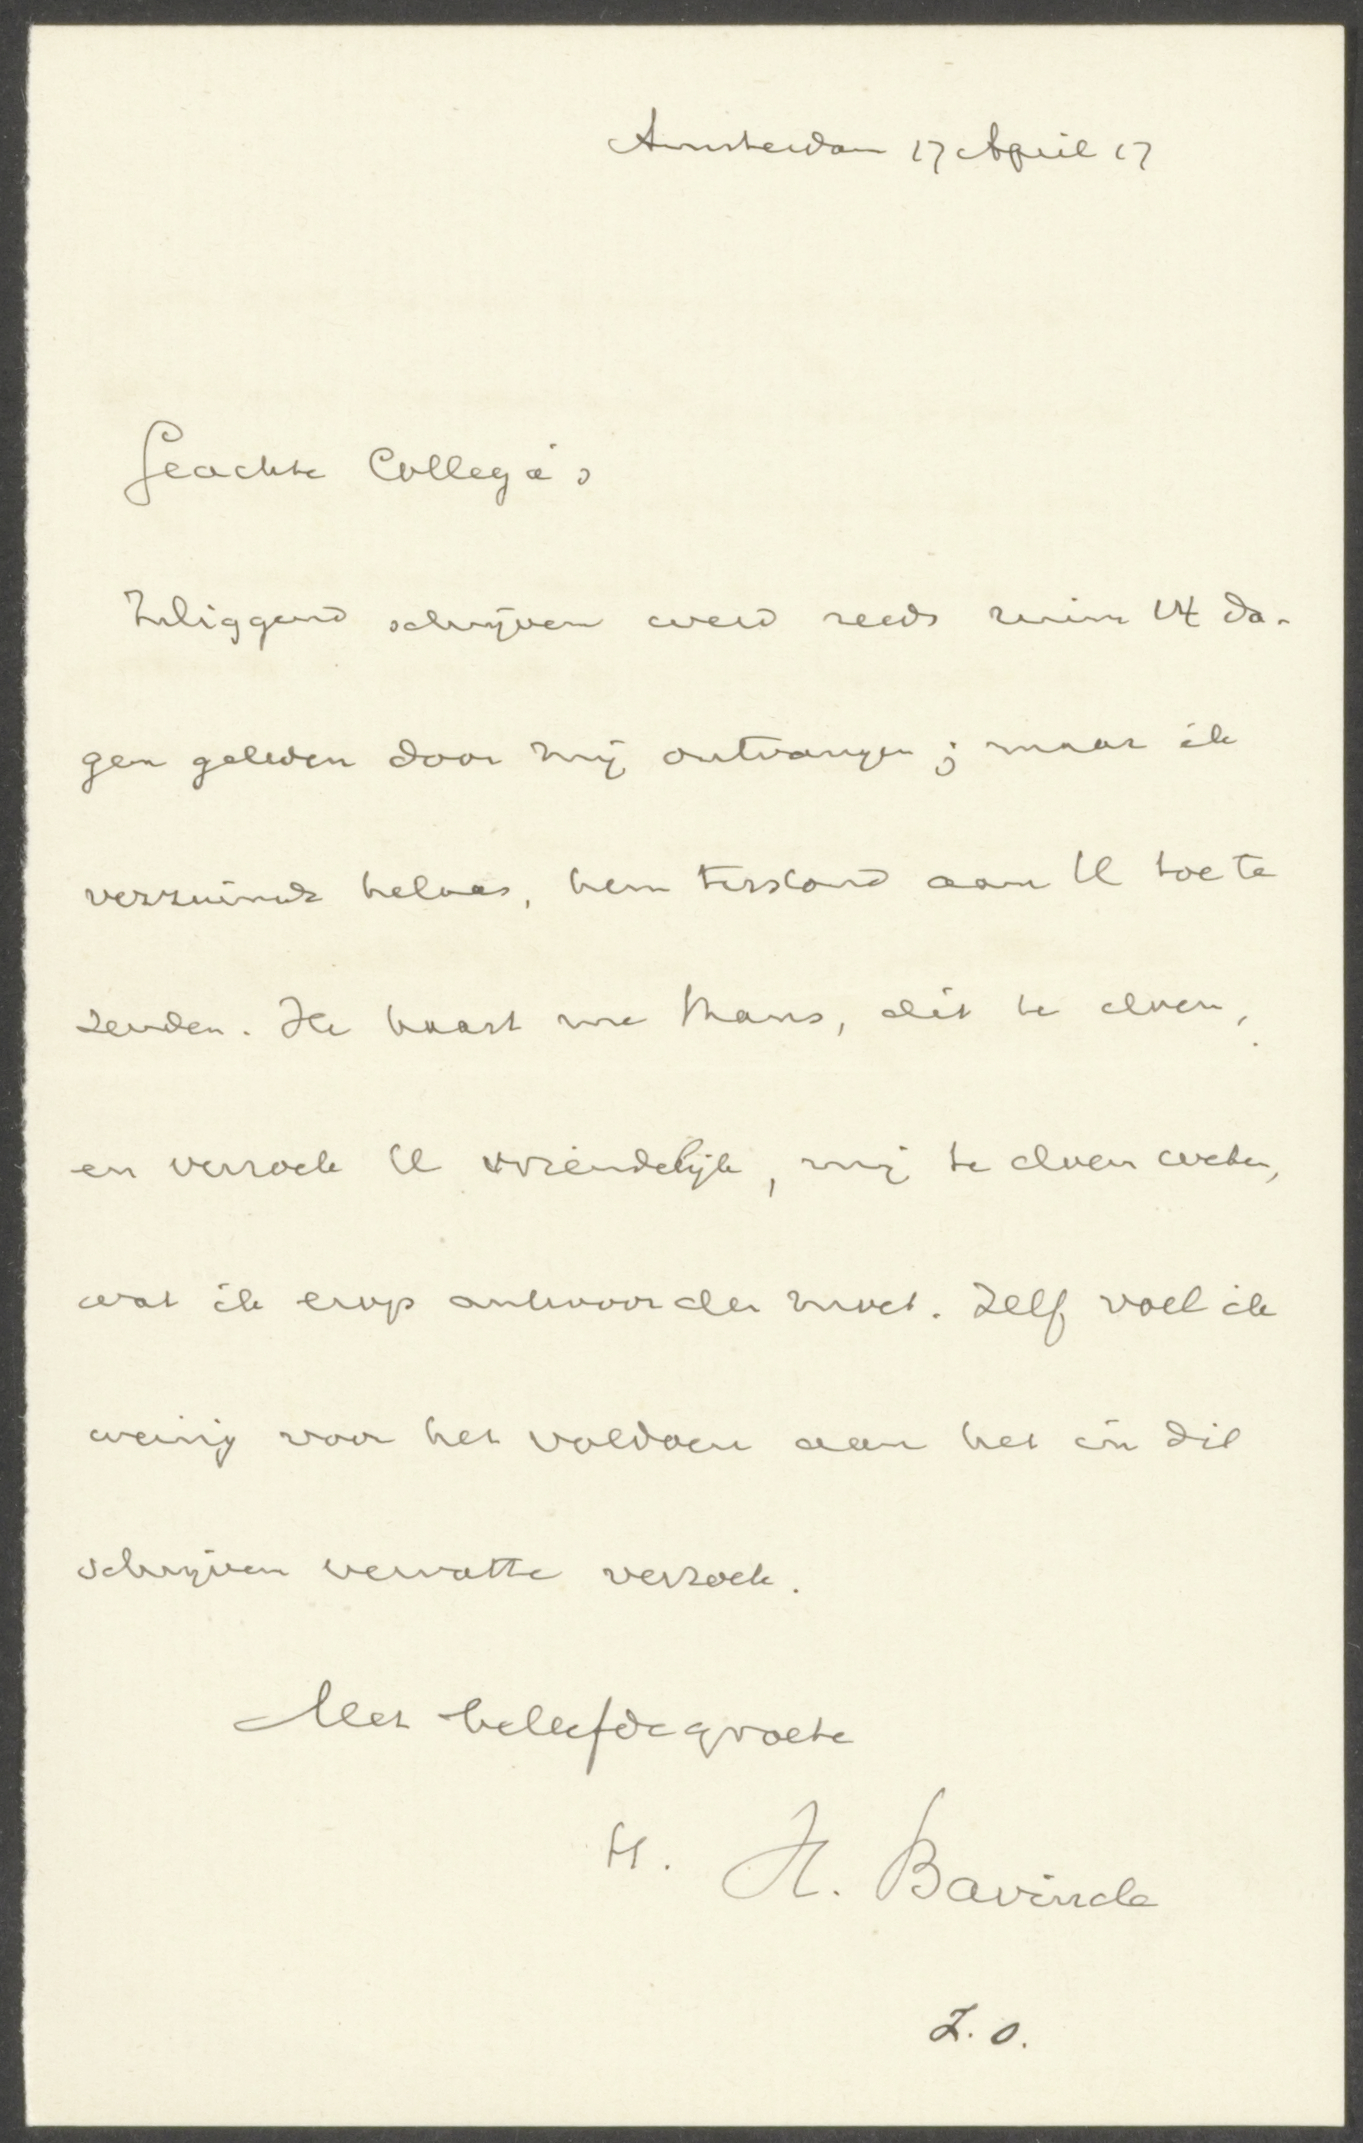 Amsterdam 17 April 17
Geachte Collega's
Inliggend schrijven werd reeds ruim 14 da-
gen geleden door mij ontvangen; maar ik
verzuimde helaas, hem terstond aan U toe te
zenden. Ik haast me thans, dit te doen,
en verzoek U vriendelijk, mij te doen weten,
wat ik erop antwoorden moet. Zelf voel ik
weinig voor het voldoen aan het in dit
schrijven vervatte verzoek.
Met beleefde groete
tt. H. Bavinck
Z.O.